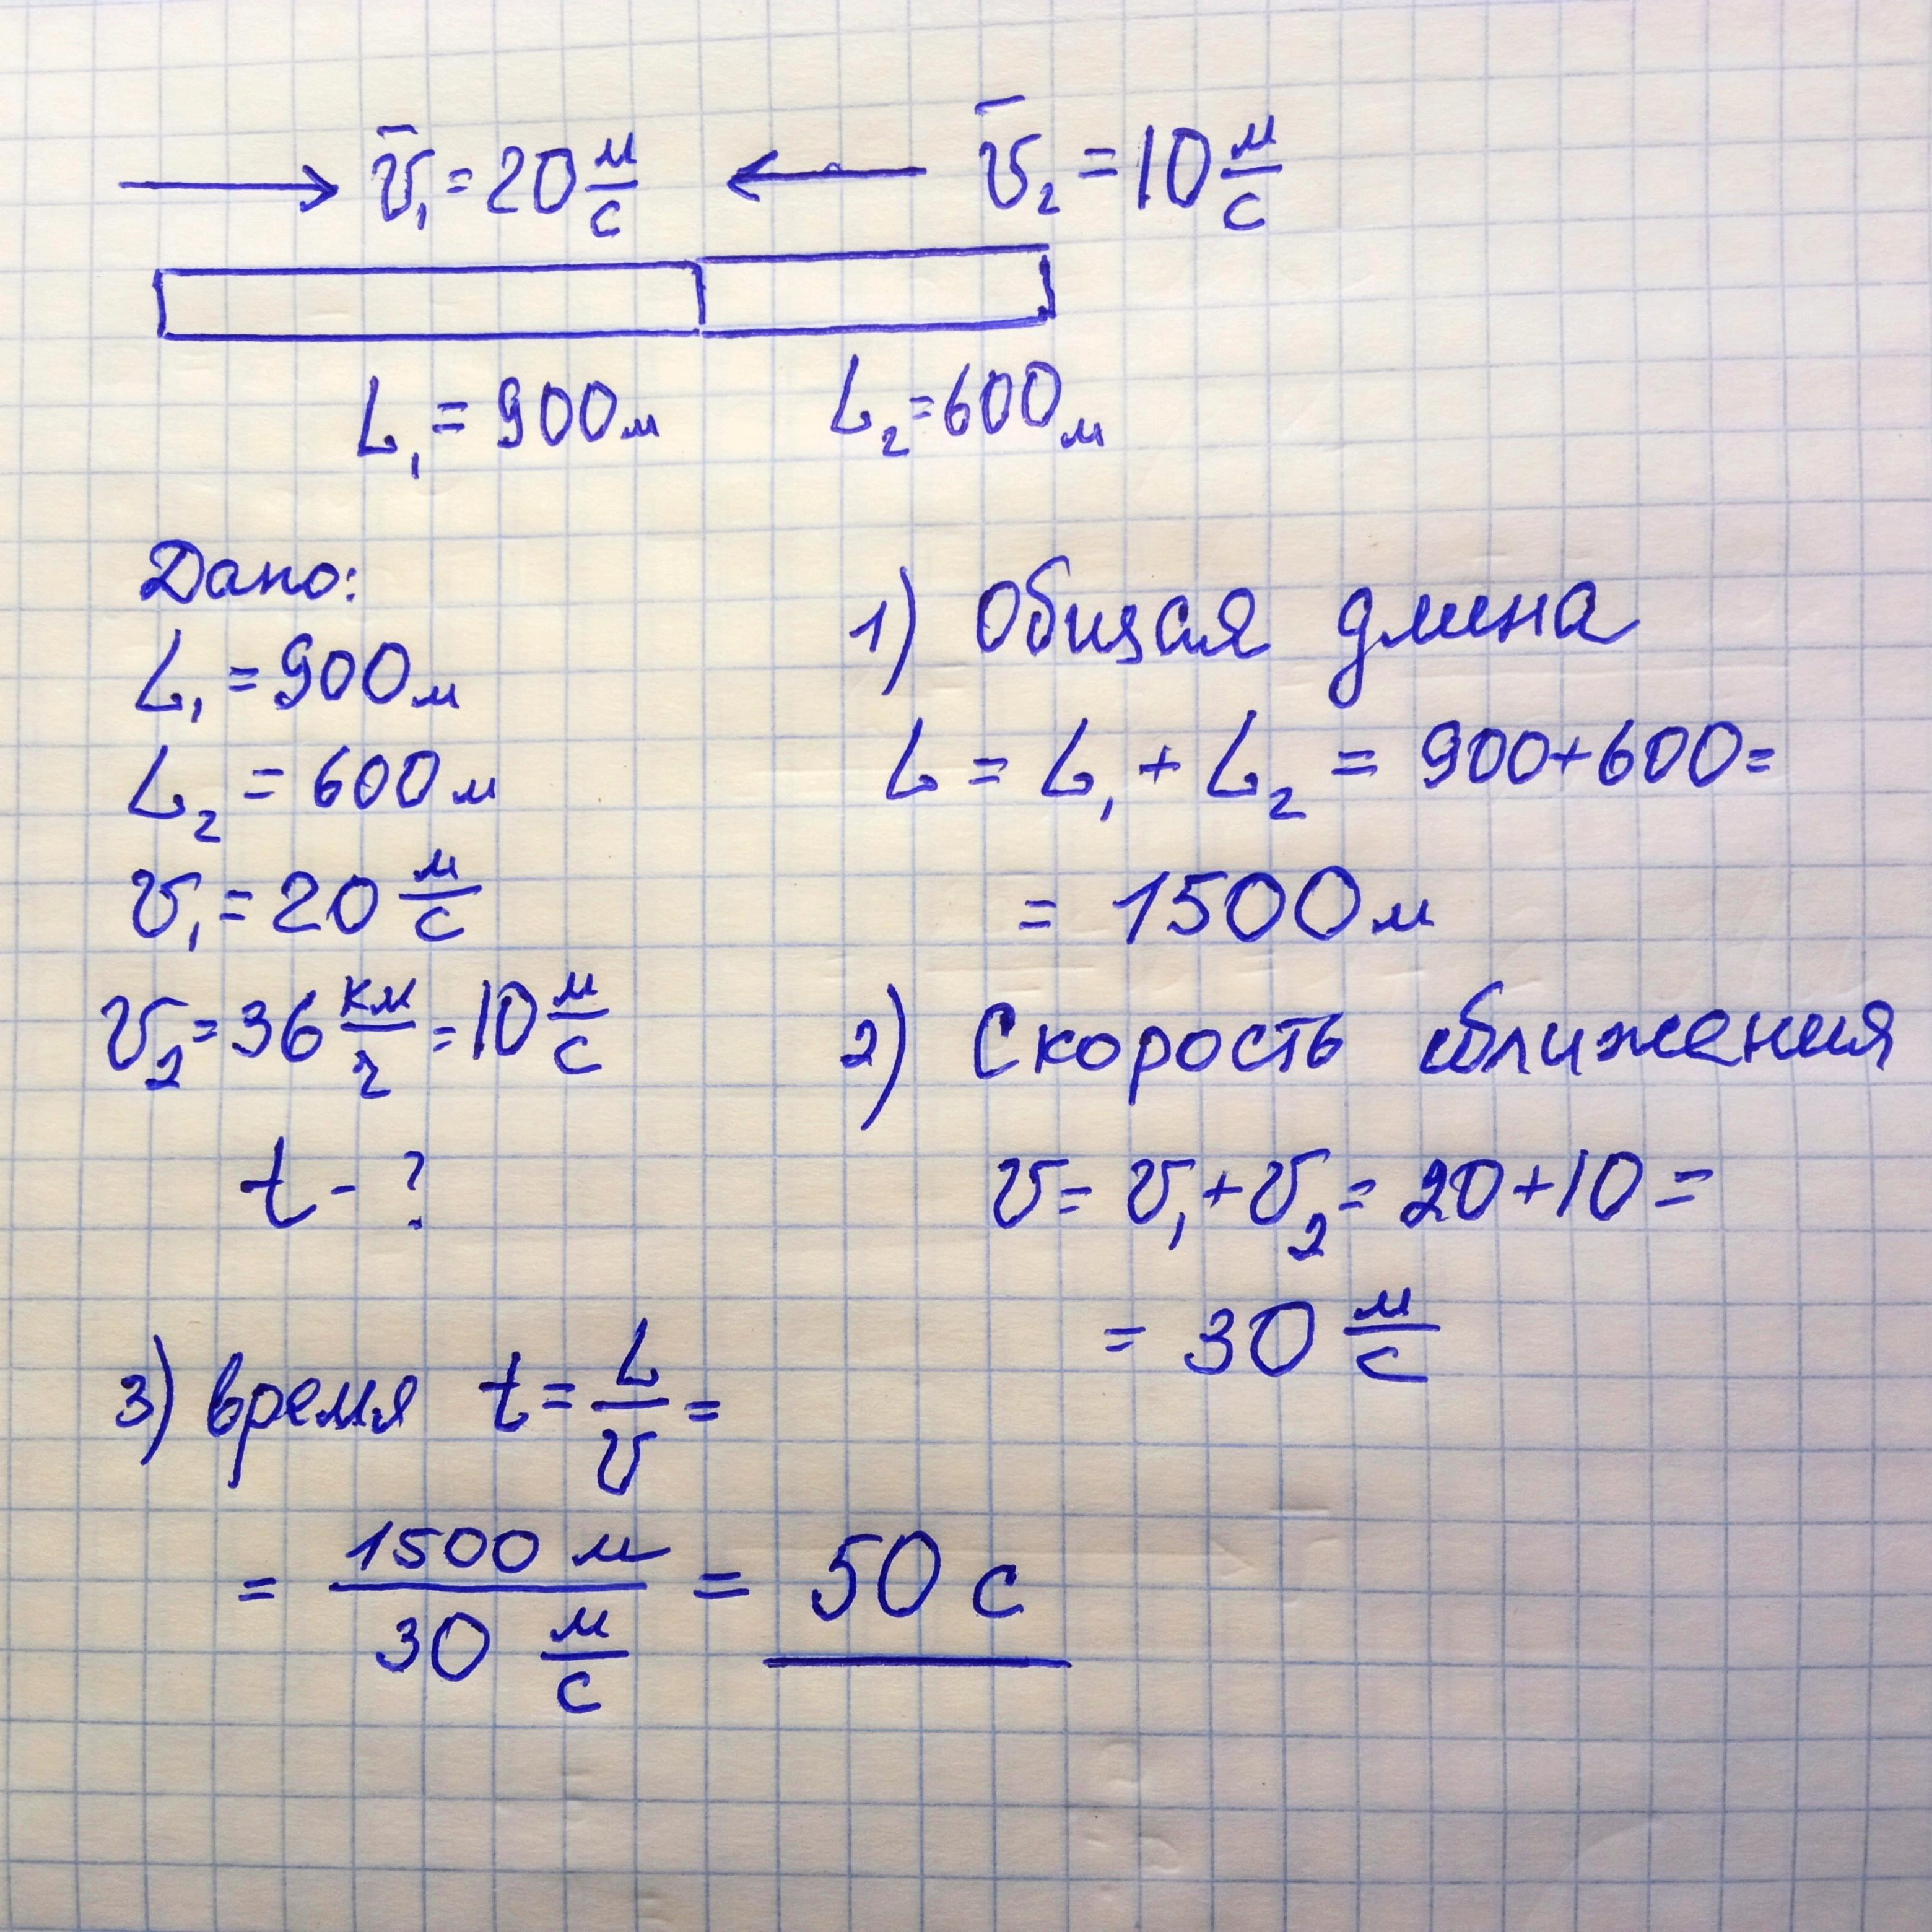 v̅₁ = 20 м/с v̅₂ = 10 м/с
L₁ = 900м L₂ = 600м
Дано:
L₁ = 900м
L₂ = 600м
v₁ = 20 м/с
v₂ = 36 км/г = 10 м/с
t - ?
1) Общая длина
L = L₁ + L₂ = 900+600=
= 1500м
2) Скорость сближения
v = v₁ + v₂ = 20+10=
= 30 м/с
3) время t = L/v =
= 1500 м / 30 м/с = 50 с